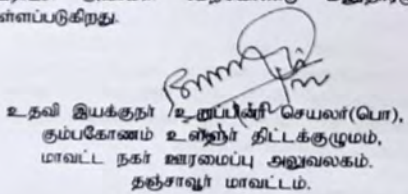 ள்ளப்படுகிறது.
உதவி இயக்குநர் /உறுப்பினர் செயலர்(பொ),
கும்பகோணம் உள்ளூர் திட்டக்குழுமம்,
மாவட்ட நகர் ஊரமைப்பு அலுவலகம்.
தஞ்சாவூர் மாவட்டம்.